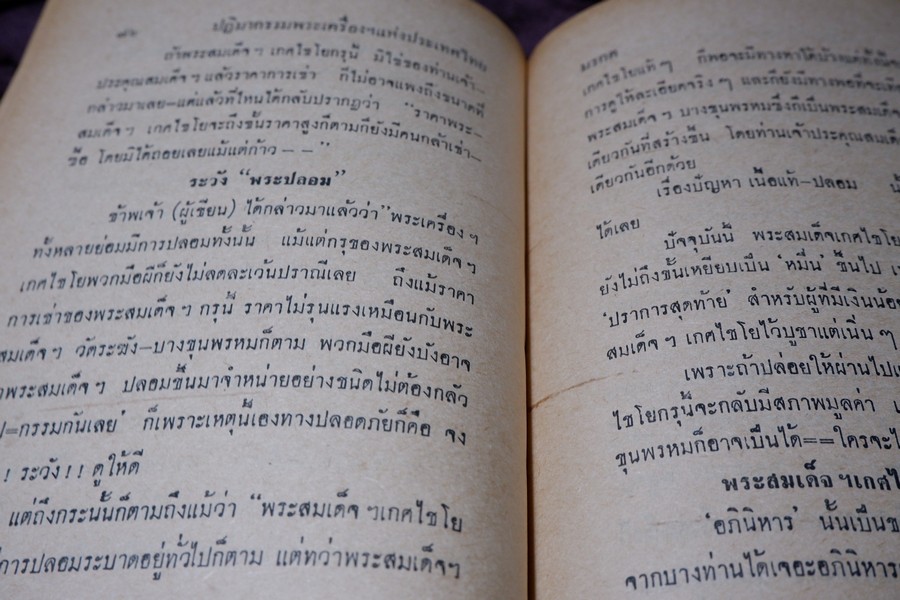 ๘๒ ปฏิมากรรมพระเครื่องฯแห่งประเทศไทย
ถ้าพระสมเด็จฯ เกศไชโยกรุนี้ มิใช่ของท่านเจ้า-
ประคุณสมเด็จฯ แล้วราคาการเช่า ก็ไม่อาจแพงถึงขนาดที่
กล่าวมาเลย-แต่แล้วที่ไหนได้กลับปรากฏว่า "ราคาพระ-
สมเด็จฯ เกศไชโยจะถึงขั้นราคาสูงก็ตามก็ยังมีคนกล้าเช่า-
ซื้อ โดยมิได้ถอยเลยแม้แต่ก้าว - -"
ระวัง "พระปลอม"
ข้าพเจ้า (ผู้เขียน) ได้กล่าวมาแล้วว่า "พระเครื่องฯ
ทั้งหลายย่อมมีการปลอมทั้งนั้น แม้แต่กรุของพระสมเด็จฯ
เกศไชโยพวกมือผีก็ยังไม่ลดละเว้นปรานีเลย ถึงแม้ราคา
การเช่าของพระสมเด็จฯ กรุนี้ ราคาไม่รุนแรงเหมือนกับพระ
สมเด็จฯ วัดระฆัง-บางขุนพรหมก็ตาม พวกมือผียังบังอาจ
พระสมเด็จฯ ปลอมขึ้นมาจำหน่ายอย่างชนิดไม่ต้องกลัว
=กรรมกันเลย' ก็เพราะเหตุนี้เองทางปลอดภัยก็คือ จง
! ระวัง!! ดูให้ดี
แต่ถึงกระนั้นก็ตามถึงแม้ว่า "พระสมเด็จฯเกศไชโย
การปลอมระบาดอยู่ทั่วไปก็ตาม แต่ทว่าพระสมเด็จฯ
มรกต
เกศไชโยแท้ๆ ก็พอจะมีทางหาได้บ้าง
การดูให้ละเอียดจริงๆ และก็ยังมีทางพอที่จะ
พระสมเด็จฯ บางขุนพรหมซึ่งก็เป็นพระสมเด็จ
เดียวกันที่สร้างขึ้น โดยท่านเจ้าประคุณสมเด็
เดียวกันอีกด้วย
เรื่องปัญหา เนื้อแท้-ปลอม
ได้เลย
ปัจจุบันนี้ พระสมเด็จเกศไชโย
ยังไม่ถึงขั้นเหยียบเป็น 'หมื่น' ขึ้นไป เ
'ปราการสุดท้าย' สำหรับผู้ที่มีเงินน้อ
สมเด็จฯ เกศไชโยไว้บูชาแต่เนิ่นๆ
เพราะถ้าปล่อยให้ผ่านไปเ
ไชโยกรุนี้จะกลับมีสภาพมูลค่า เ
ขุนพรหมก็อาจเป็นได้==ใครจะไ
พระสมเด็จฯเกศไ
'อภินิหาร' นั้นเป็นข
จากบางท่านได้เจอะอภินิหาร